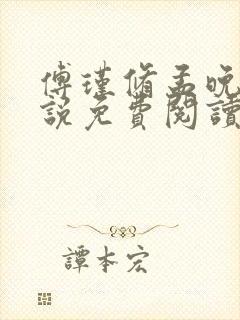 傅瑾脩孟晚
說免費閱讀
譚本宏